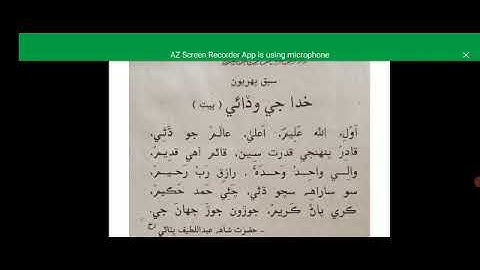 AZ Screen Recorder App is using microphone
سبق پهريون
خدا جي وڏائي (بيت)
اَوَلُ، الله عَلِيمُ، اَعليٰ، عالَمَ جو ڌَڻِي،
قادِرُ پنهنجي قدرت سِين، قائم آهي قديم،
والِي واحِدُ وَحدَهٗ، رازِق رَبُ رَحِيم،
سو ساراهه سچو ڌڻي، چئي حمد حڪيم،
ڪري پاڻ ڪَرِيمُ، جوڙون جوڙ جهان جي.
- حضرت شاهه عبداللطيف ڀٽائي رح